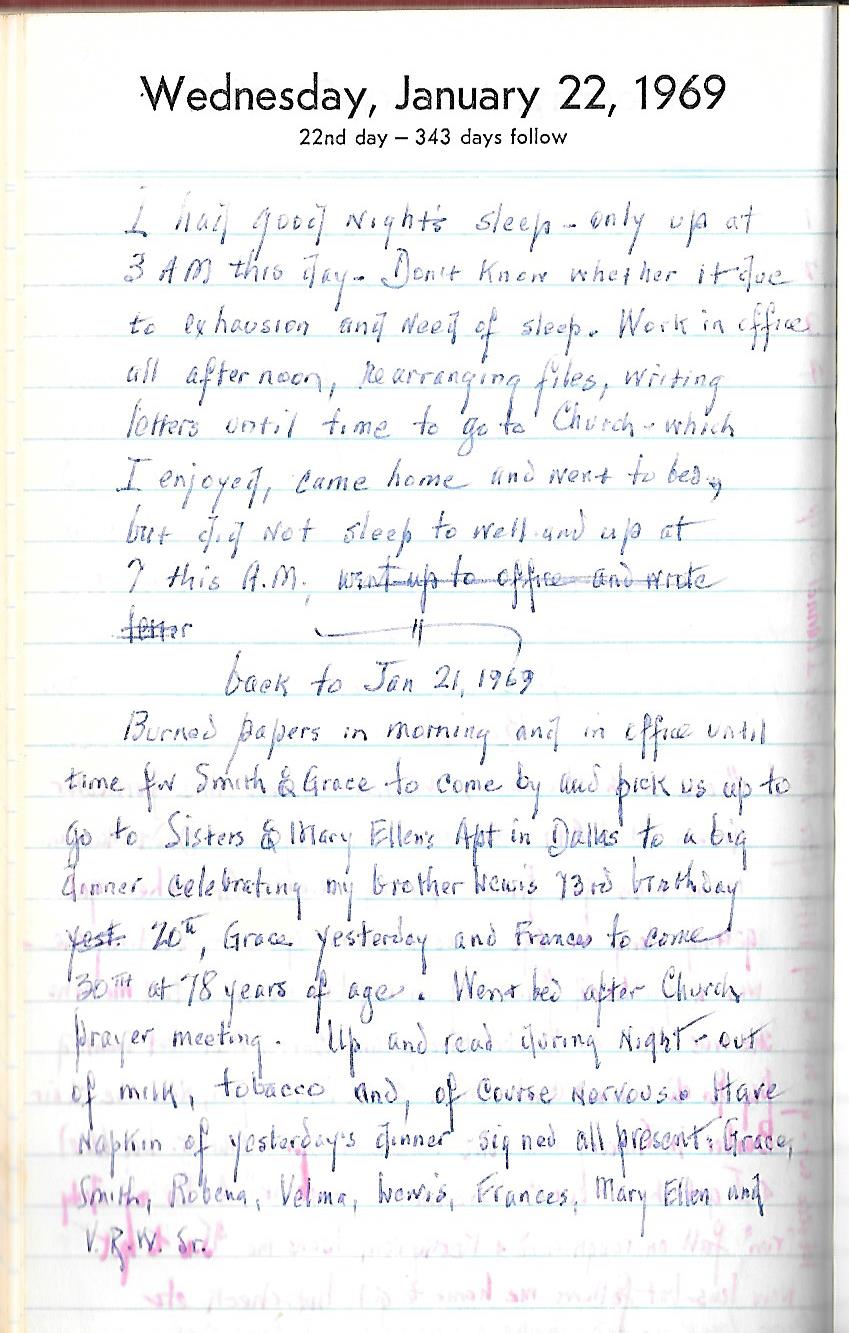 Wednesday, January 22, 1969
22nd day – 343 days follow
I had good Night's sleep - only up at
3 AM this day - Don't Know whether it due
to exhausion and Need of sleep. Work in office
all afternoon, Rearranging files, writing
letters until time to go to Church - which
I enjoyed, came home and went to bed,
but did Not sleep to well and up at
7 this A.M., went up to office and wrote
letter "
back to Jan 21, 1969
Burned papers in morning and in office until
time for Smith & Grace to come by and pick us up to
go to Sisters & Mary Ellen's Apt in Dallas to a big
dinner celebrating my brother Lewis 73rd birthday
yest. 20TH, Grace yesterday and Frances to come
30TH at 78 years of age. Went bed after Church
prayer meeting. Up and read during Night - out
of milk, tobacco and, of course Nervous. Have
Napkin of yesterday's dinner signed all present: Grace,
Smith, Robena, Velma, Lewis, Frances, Mary Ellen and
V.R.W. Sr.